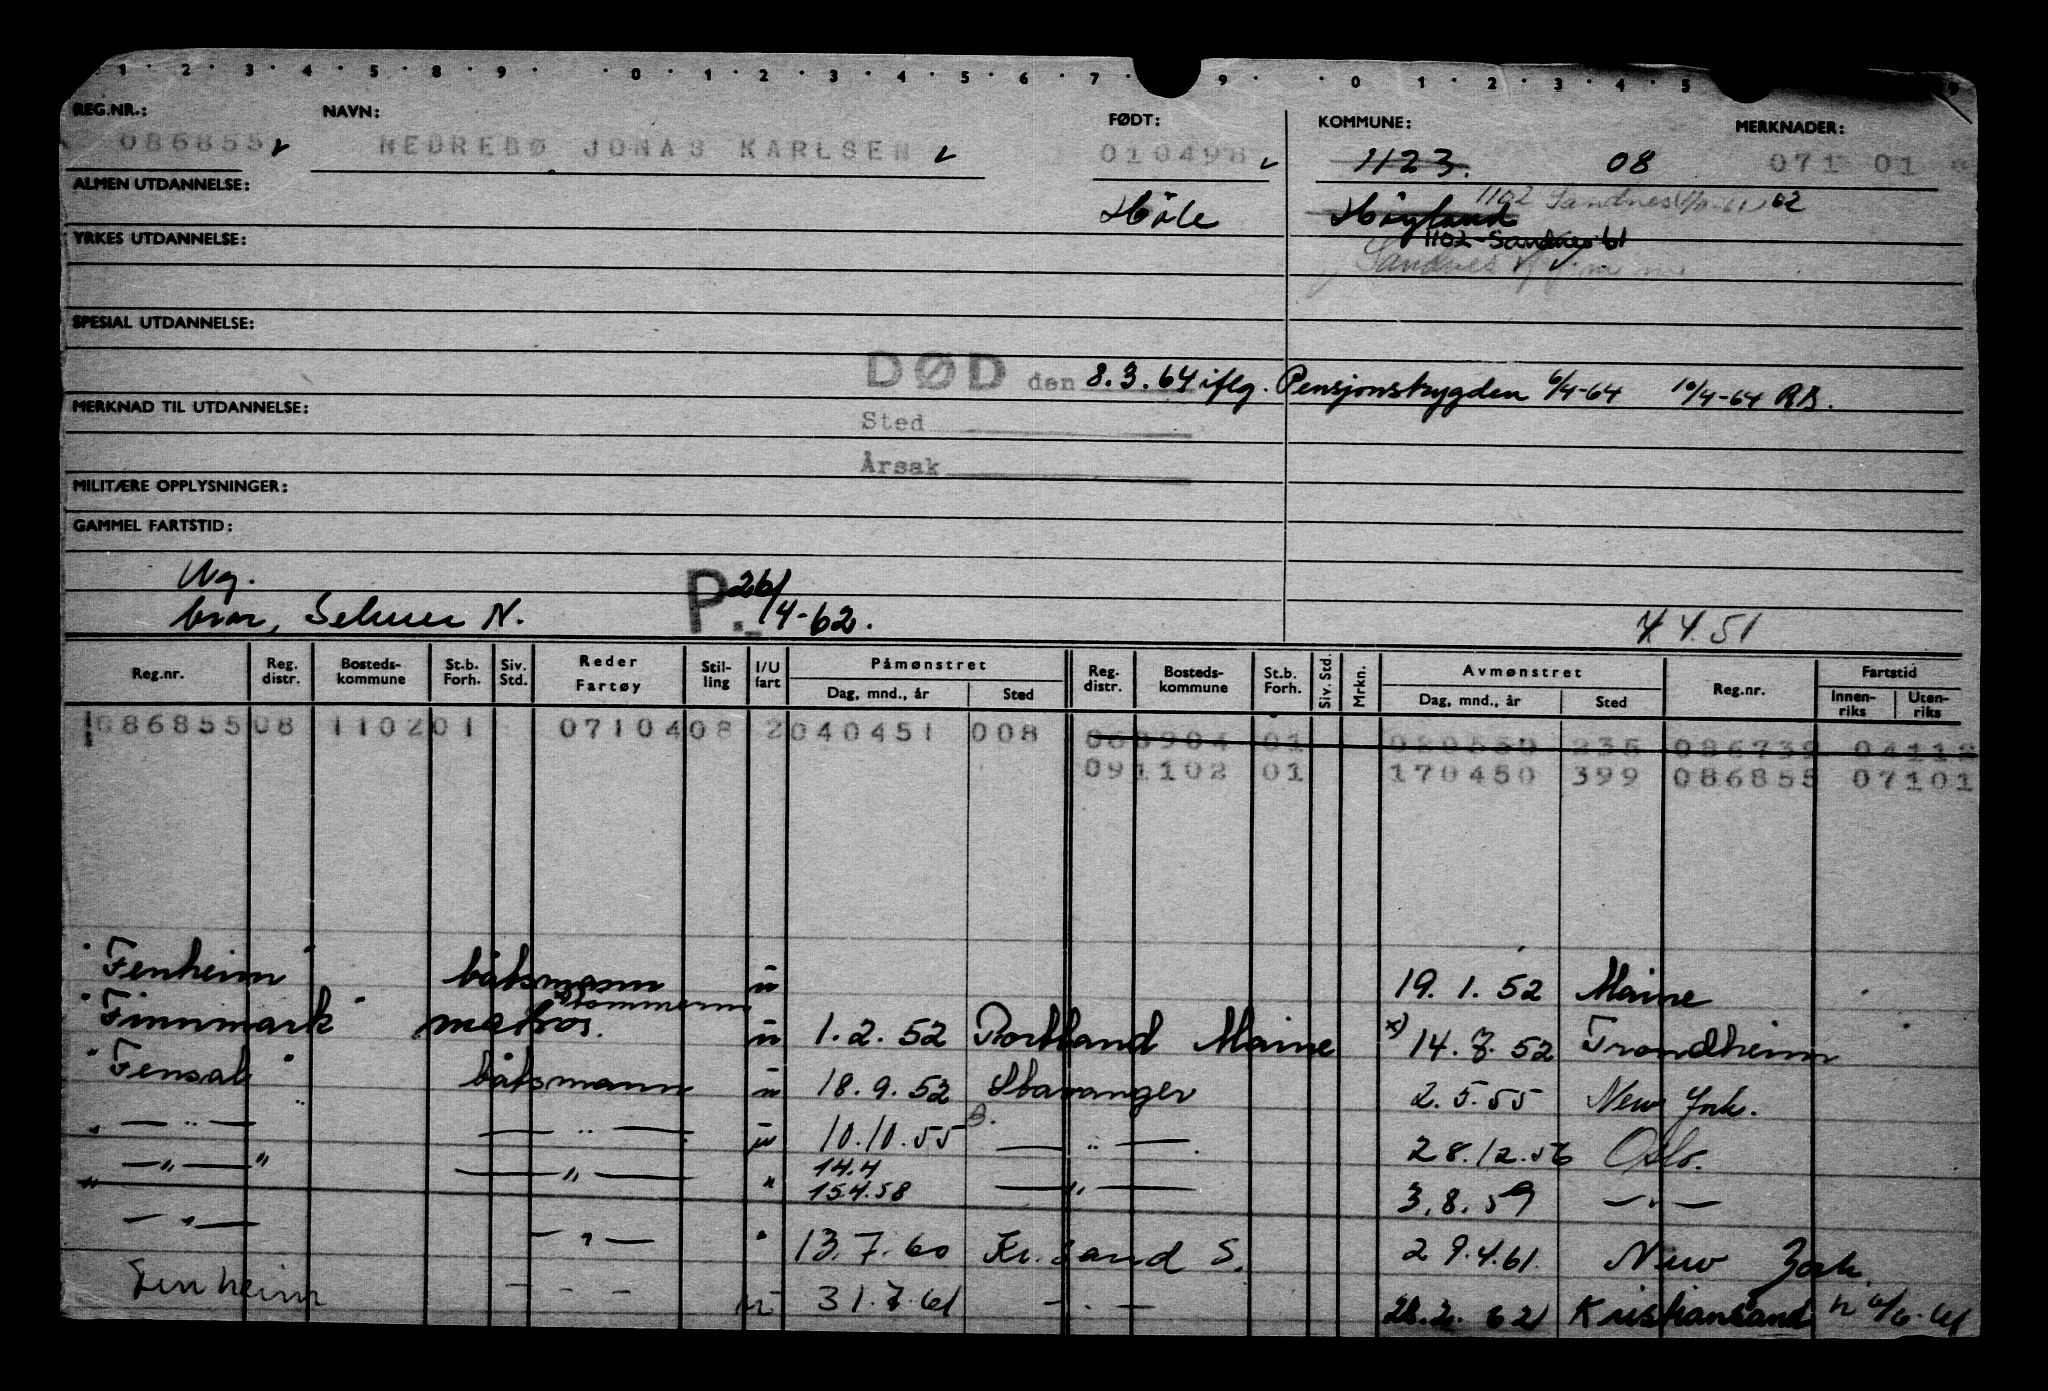 1 2 3 4 5 8 9 0 1 2 3 4 5 6 7 9 0 1 2 3 4 5 9
REG.NR.: NAVN: FØDT: KOMMUNE: MERKNADER:
086855 NEDREBØ JONAS KARLSEN 010498 1123. 08 071 01
ALMEN UTDANNELSE:
Høle Høyland 1102 Sandnes 02
YRKES UTDANNELSE: 1102 Sandnes 61
Sandnes
SPESIAL UTDANNELSE:
DØD den 8.3.64 iflg. Pensjonstrygden 6/4-64 10/4-64 RB.
MERKNAD TIL UTDANNELSE:
Sted
Årsak
MILITÆRE OPPLYSNINGER:
GAMMEL FARTSTID:
Ug.
bror, Selmer N. P. 26/4-62. 4 4 51
Reg.nr. Reg. distr. Bosteds-kommune St.b. Forh. Siv. Std. Reder Fartøy Stil-ling I/U fart Påmønstret Reg. distr. Bosteds-kommune St.b. Forh. Siv. Std. Mrkn. Avmønstret Reg.nr. Fartstid
Dag, mnd., år Sted Dag, mnd., år Sted Innen-riks Uten-riks
086855 08 1102 01 0710408 2 040451 008 088904 01 020550 236 086739 04112
091102 01 170450 399 086855 07101
Fenheim båtsmann u 19. 1. 52 Maine
Finnmark matros. tømmerm u 1.2.52 Portland Maine x) 14.8.52 Trondheim
Fensal båtsmann u 18.9.52 Stavanger 2.5.55 New York.
— " — — " — u 10.10.55 — " — 28.12.56 Oslo.
— " — — " — " 14.4 15.4.58 — " — 3.8.59 — " —
— " — — " — " 13.7.60 Kr. sand S. 29.4.61. New York.
Fenheim — — — u 31.7.61 — " — 28.2.62 Kristiansand